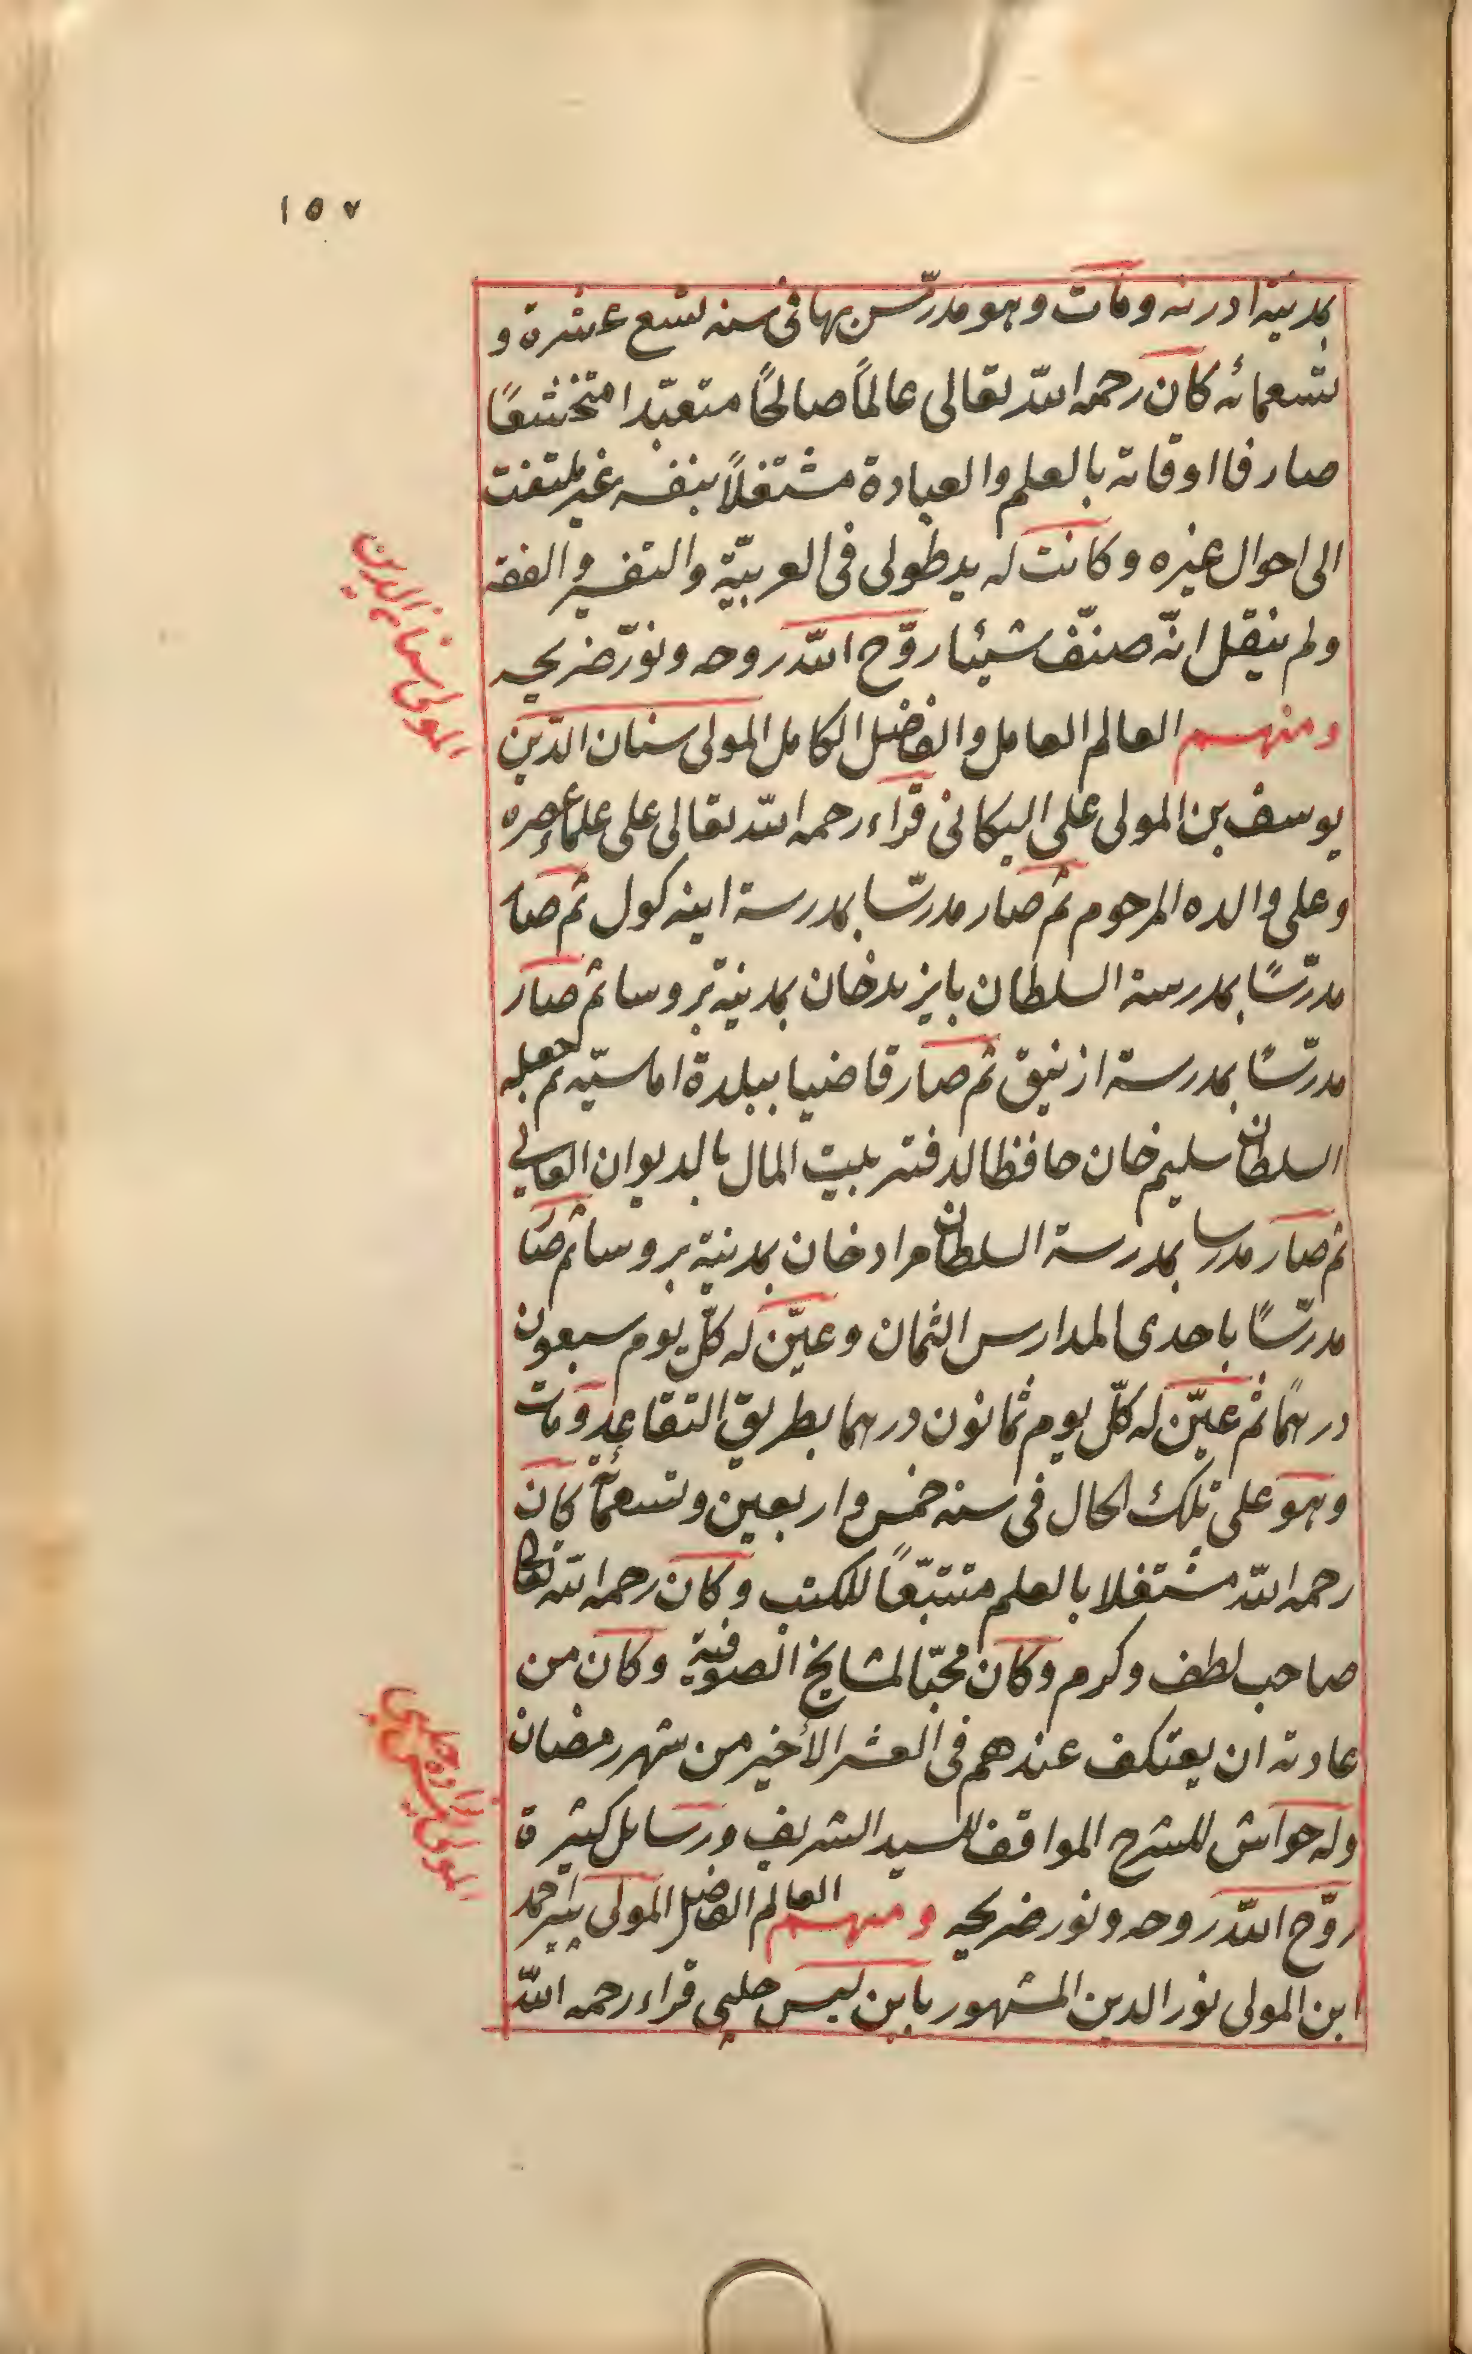 ١٥٧
بمدينة ادرنه ومات وهو مدرّس بها فى سنه تسع عشرة و
تسعمائه كان رحمه اللّه تعالى عالمًا صالحًا متعبّدا متخشعًا
صارفا اوقاته بالعلم والعبادة مشتغلاً بنفسه غير ملتفت
الى احوال غيره وكانت له يد طولى فى العربيّة والتفسير والفقه
ولم ينقل انّه صنّف شيئا روّح اللّه روحه ونوّر ضريحه
ومنهم العالم العامل والفاضل الكامل المولى سنان الدّين
يوسف بن المولى على اليكانى قراء رحمه اللّه تعالى على علماء عصره
وعلى والده المرحوم ثم صار مدرسّا بمدرسة اينه كول ثم صار
مدرّسًا بمدرسة السلطان بايزيد خان بمدينة بروسا ثم صار
مدرّسًا بمدرسة ازنيق ثم صار قاضيا ببلدة اماسيّه ثم جعله
السلطان سليم خان حافظا لدفتر بيت المال بالديوان العالى
ثم صار مدرسا بمدرسة السلطان مراد خان بمدينة بروسا ثم صار
مدرّسًا باحدى المدارس الثمان وعيّن له كلّ يوم سبعون
درهمًا ثم عيّن له كلّ يوم ثمانون درهما بطريق التقاعد ومات
وهو على تلك الحال فى سنه خمس واربعين وتسعمائة كان
رحمه اللّه مشتغلا بالعلم متتبّعاً للكتب وكان رحمه اللّه تعالى
صاحب لطف وكرم وكان محبّا لمشايخ الصوفية وكان من
عادته ان يعتكف عندهم فى العشر الأخير من شهر رمضان
وله حواش للشرح المواقف للسيد الشريف ورسايل كثيرة
روّح اللّه روحه ونور ضريحه ومنهم العالم الفاضل المولى پير احمد
ابن المولى نور الدين المشهور بابن ليس چلبى قراء رحمه اللّه
المولى سنان الدين